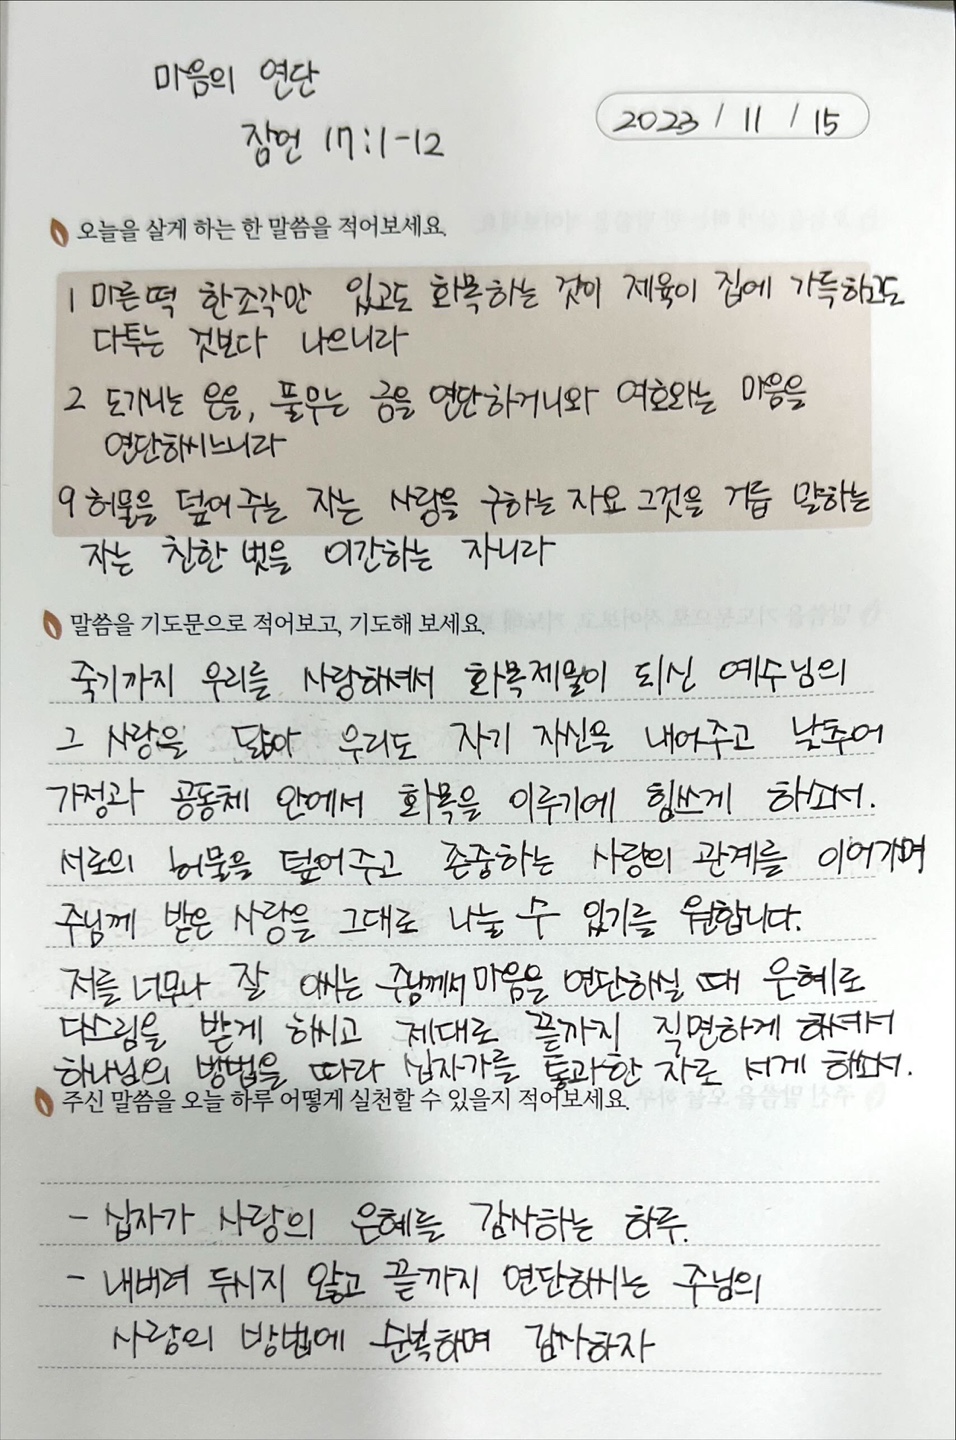 마음의 연단
잠언 17:1-12
2023 / 11 / 15
오늘을 살게 하는 한 말씀을 적어보세요.
1 마른떡 한조각만 있고도 화목하는 것이 제육이 집에 가득하고도
다투는 것보다 나으니라
2 도가니는 은을, 풀무는 금을 연단하거니와 여호와는 마음을
연단하시느니라
9 허물을 덮어주는 자는 사랑을 구하는자요 그것을 거듭 말하는
자는 친한 벗을 이간하는 자니라
말씀을 기도문으로 적어보고, 기도해 보세요.
죽기까지 우리를 사랑하셔서 화목제물이 되신 예수님의
그 사랑을 닮아 우리도 자기 자신을 내어주고 낮추어
가정과 공동체 안에서 화목을 이루기에 힘쓰게 하소서.
서로의 허물을 덮어주고 존중하는 사랑의 관계를 이어가며
주님께 받은 사랑을 그대로 나눌 수 있기를 원합니다.
저를 너무나 잘 아시는 주님께서 마음을 연단하실 때 은혜로
다스림을 받게 하시고 제대로 끝까지 직면하게 하셔서
하나님의 방법을 따라 십자가를 통과한 자로 서게 하소서.
주신 말씀을 오늘 하루 어떻게 실천할 수 있을지 적어보세요.
- 십자가 사랑의 은혜를 감사하는 하루.
- 내버려 두시지 않고 끝까지 연단하시는 주님의
사랑의 방법에 순복하며 감사하자